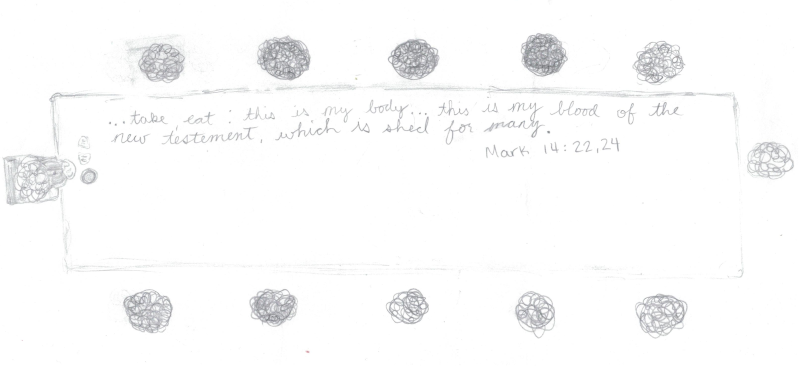 ...take eat : this is my body... this is my blood of the
new testement, which is shed for many.
Mark 14:22,24